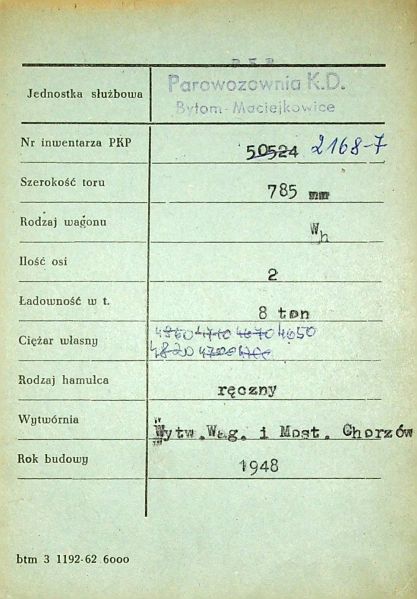 PKP
Jednostka służbowa Parowozownia K.D.
Bytom-Maciejkowice
Nr inwentarza PKP 50524 2168-7
Szerokość toru 785 mm
Rodzaj wagonu Wh
Ilość osi 2
Ładowność w t. 8 ton
Ciężar własny 4710 4670 4650
4820 4700
Rodzaj hamulca ręczny
Wytwórnia Wytw.Wag. i Most. Chorzów
Rok budowy 1948
btm 3 1192-62 6000